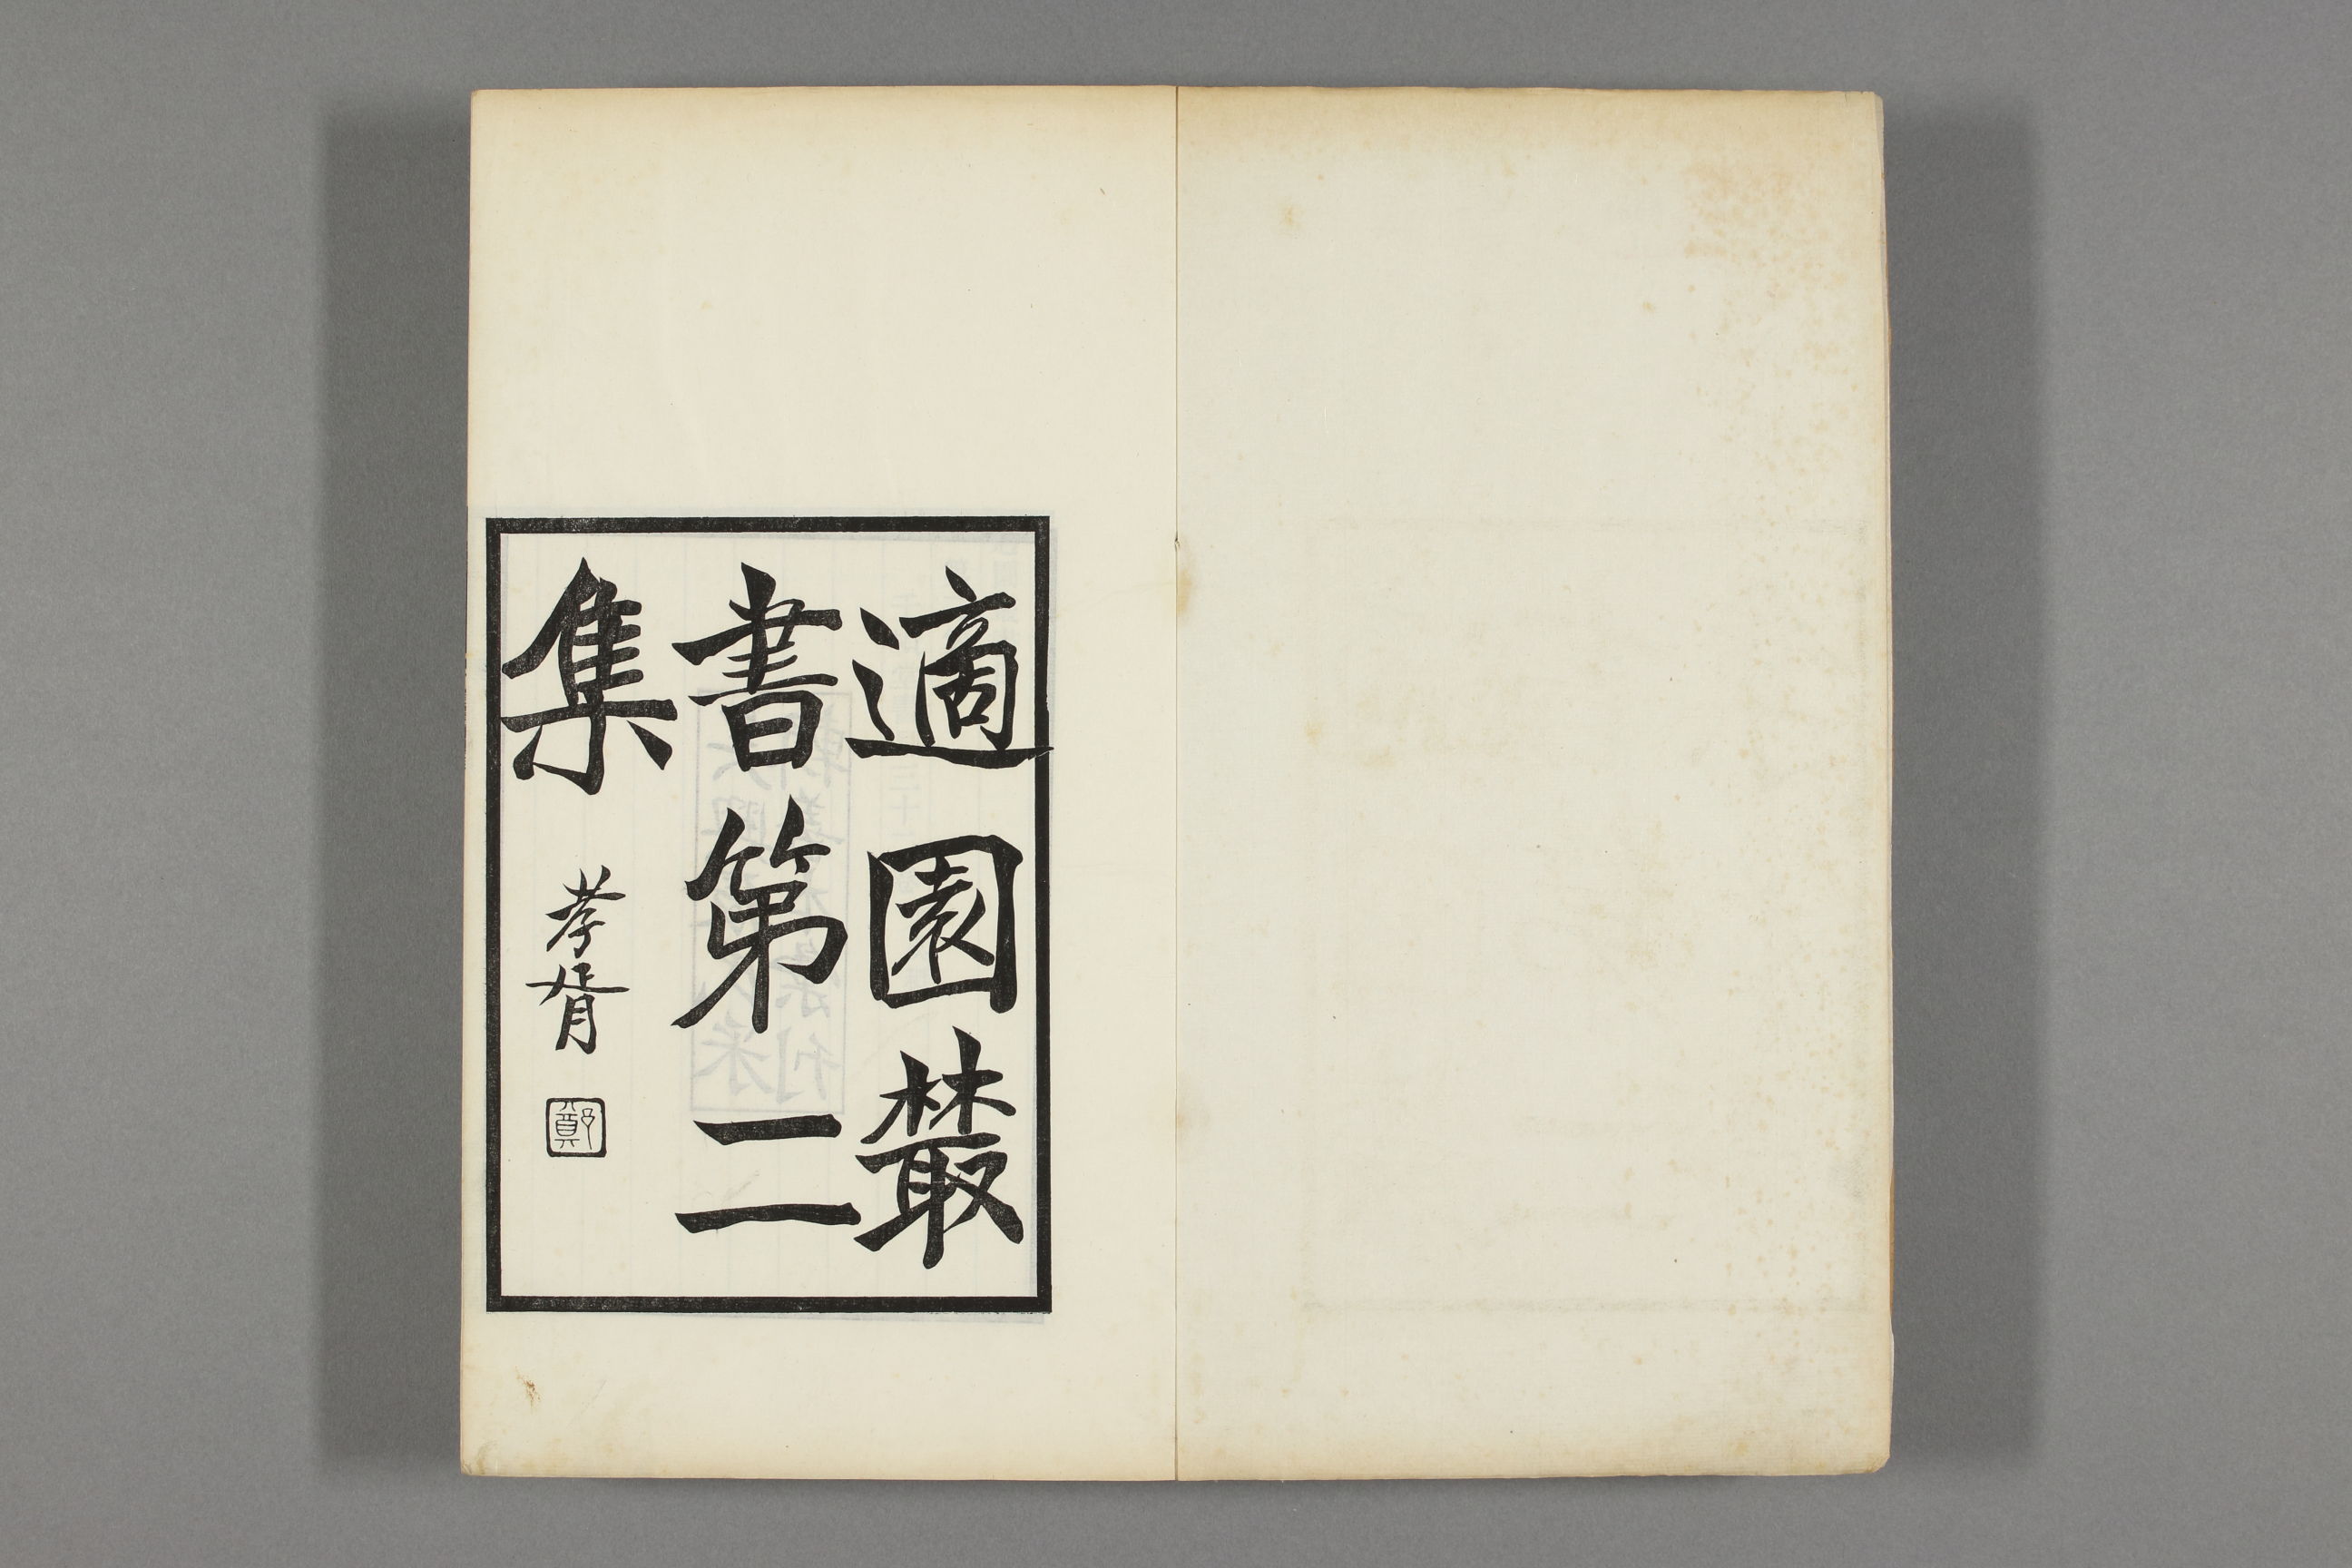 適園叢
書第二
集
孝胥
鄭